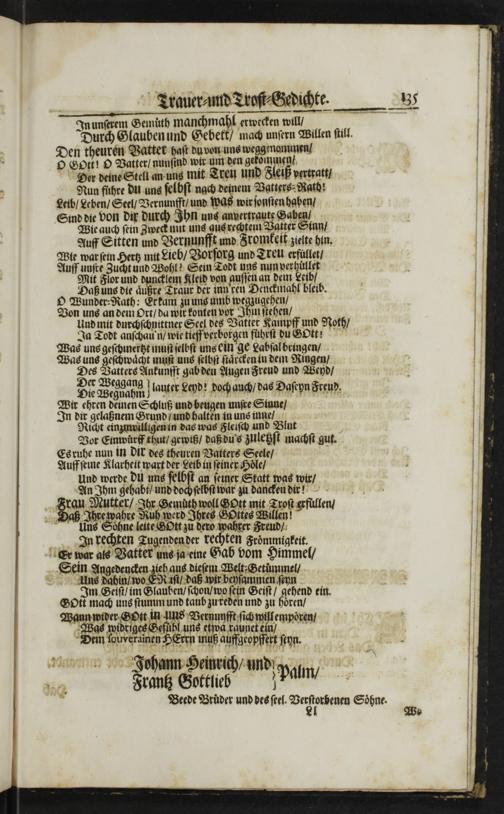 Trauer-und Trost-Gedichte. 135
In unserem Gemüth manchmahl erwecken will/
Durch Glauben und Gebett/ mach unsern Willen still.
Den theuren Vatter hast du von uns weggenommen/
O GOtt! O Vatter/ nun sind wir um den gekommen/
Der deine Stell an uns mit Treu und Fleiß vertratt/
Nun führe du uns selbst nach deinem Vatters-Rath!
Leib/ Leben/ Seel/ Vernunfft/ und was wir sonsten haben/
Sind die von dir durch Ihn uns anvertraute Gaben/
Wie auch sein Zweck mit uns aus rechtem Vatter Sinn/
Auff Sitten und Vernunfft und Fromkeit zielte hin.
Wie war sein Hertz mit Lieb/ Vorsorg und Treu erfüllet/
Auff unsre Zucht und Wohl! Sein Todt uns nun verhüllet
Mit Flor und duncklem Kleid von aussen an dem Leib/
Daß uns die äußre Traur der inn'ren Denckmahl bleib.
O Wunder-Rath: Er kam zu uns umb wegzugehen/
Von uns an dem Ort/ da wir konten vor Ihm stehen/
Und mit durchschnittner Seel des Vatter Kampff und Noth/
Ja Todt anschau'n/ wie tieff verborgen führst du GOtt!
Was uns geschmertzt muß selbst uns ein'ge Labsal bringen/
Was uns geschwächt muß uns selbst stärcken in dem Ringen/
Des Vatters Ankunfft gab den Augen Freud und Weyd/
Der Weggang
Die Wegnahm } lauter Leyd! doch auch/ das Daseyn Freud.
Wir ehren deinen Schluß und beugen unsre Sinne/
In dir gelaßnem Grund/ und halten in uns inne/
Nicht einzuwilligen in das was Fleisch und Blut
Vor Einwürff thut/ gewiß/ daß du's zuletzst machst gut.
Es ruhe nun in dir des theuren Vatters Seele/
Auff seine Klarheit wart der Leib in seiner Höle/
Und werde du uns selbst an seiner Statt was wir/
An Ihm gehabt/ und doch selbst war zu dancken dir!
Frau Mutter/ Ihr Gemüth woll GOtt mit Trost erfüllen/
Daß Ihre wahre Ruh werd Ihres GOttes Willen!
Uns Söhne leite GOtt zu dero wahrer Freud/
In rechten Tugenden der rechten Frömmigkeit.
Er war als Vatter uns ja eine Gab vom Himmel/
Sein Angedencken zieh aus diesem Welt-Getümmel/
Uns dahin/ wo ER ist/ daß wir beysammen seyn
Im Geist/ im Glauben/ schon/ wo sein Geist/ gehend ein.
GOtt mach uns stumm und taub zu reden und zu hören/
Wann wider GOtt in uns Vernunfft sich will empören/
Was widriges Gefühl uns etwa raunet ein/
Dem souverainen HErrn muß auffgeopffert seyn.
Johann Heinrich/ und
Frantz Gottlieb } Palm/
Beede Brüder und des seel. Verstorbenen Söhne.
Ll We